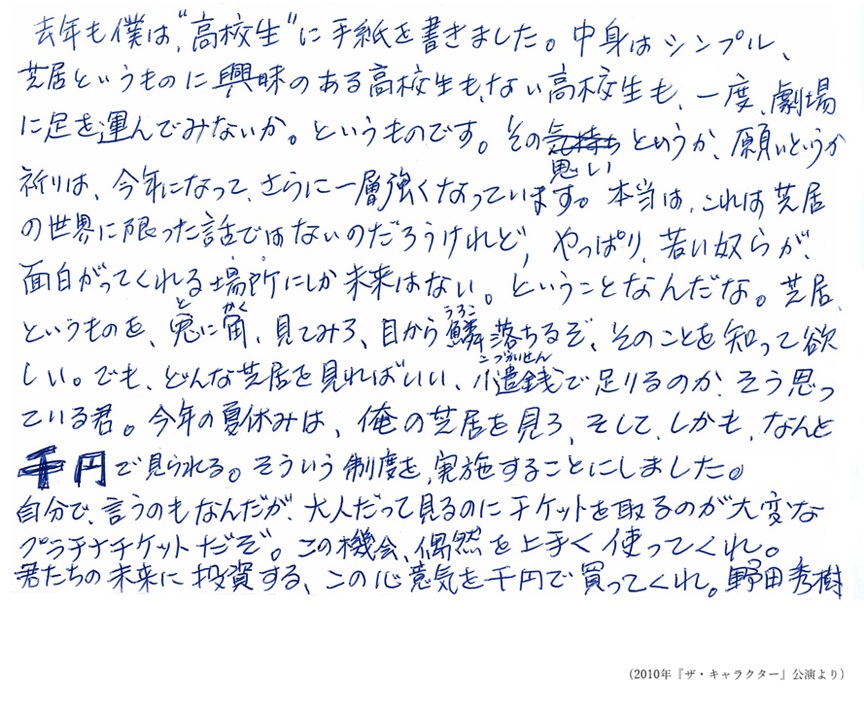 去年も僕は、"高校生"に手紙を書きました。中身はシンプル、
芝居というものに興味のある高校生も、ない高校生も、一度、劇場
に足を運んでみないか。というものです。その気持ち思いというか、願いというか
祈りは、今年になって、さらに一層強くなっています。本当は、これは芝居
の世界に限った話ではないのだろうけれど、やっぱり、若い奴らが、
面白がってくれる場所にしか未来はない。ということなんだな。芝居、
というものを、兎に角、見てみろ、目から鱗落ちるぞ、そのことを知って欲
とかくうろこ
しい。でも、どんな芝居を見ればいい、小遣銭で足りるのか、そう思っ
こづかいせん
ている君。今年の夏休みは、俺の芝居を見ろ、そして、しかも、なんと
千円で見られる。そういう制度を、実施することにしました。
自分で、言うのもなんだが、大人だって見るのにチケットを取るのが大変な
プラチナチケットだぞ。この機会、偶然を上手く使ってくれ。
君たちの未来に投資する、この心意気を千円で買ってくれ。野田秀樹
(2010年『ザ・キャラクター』公演より)